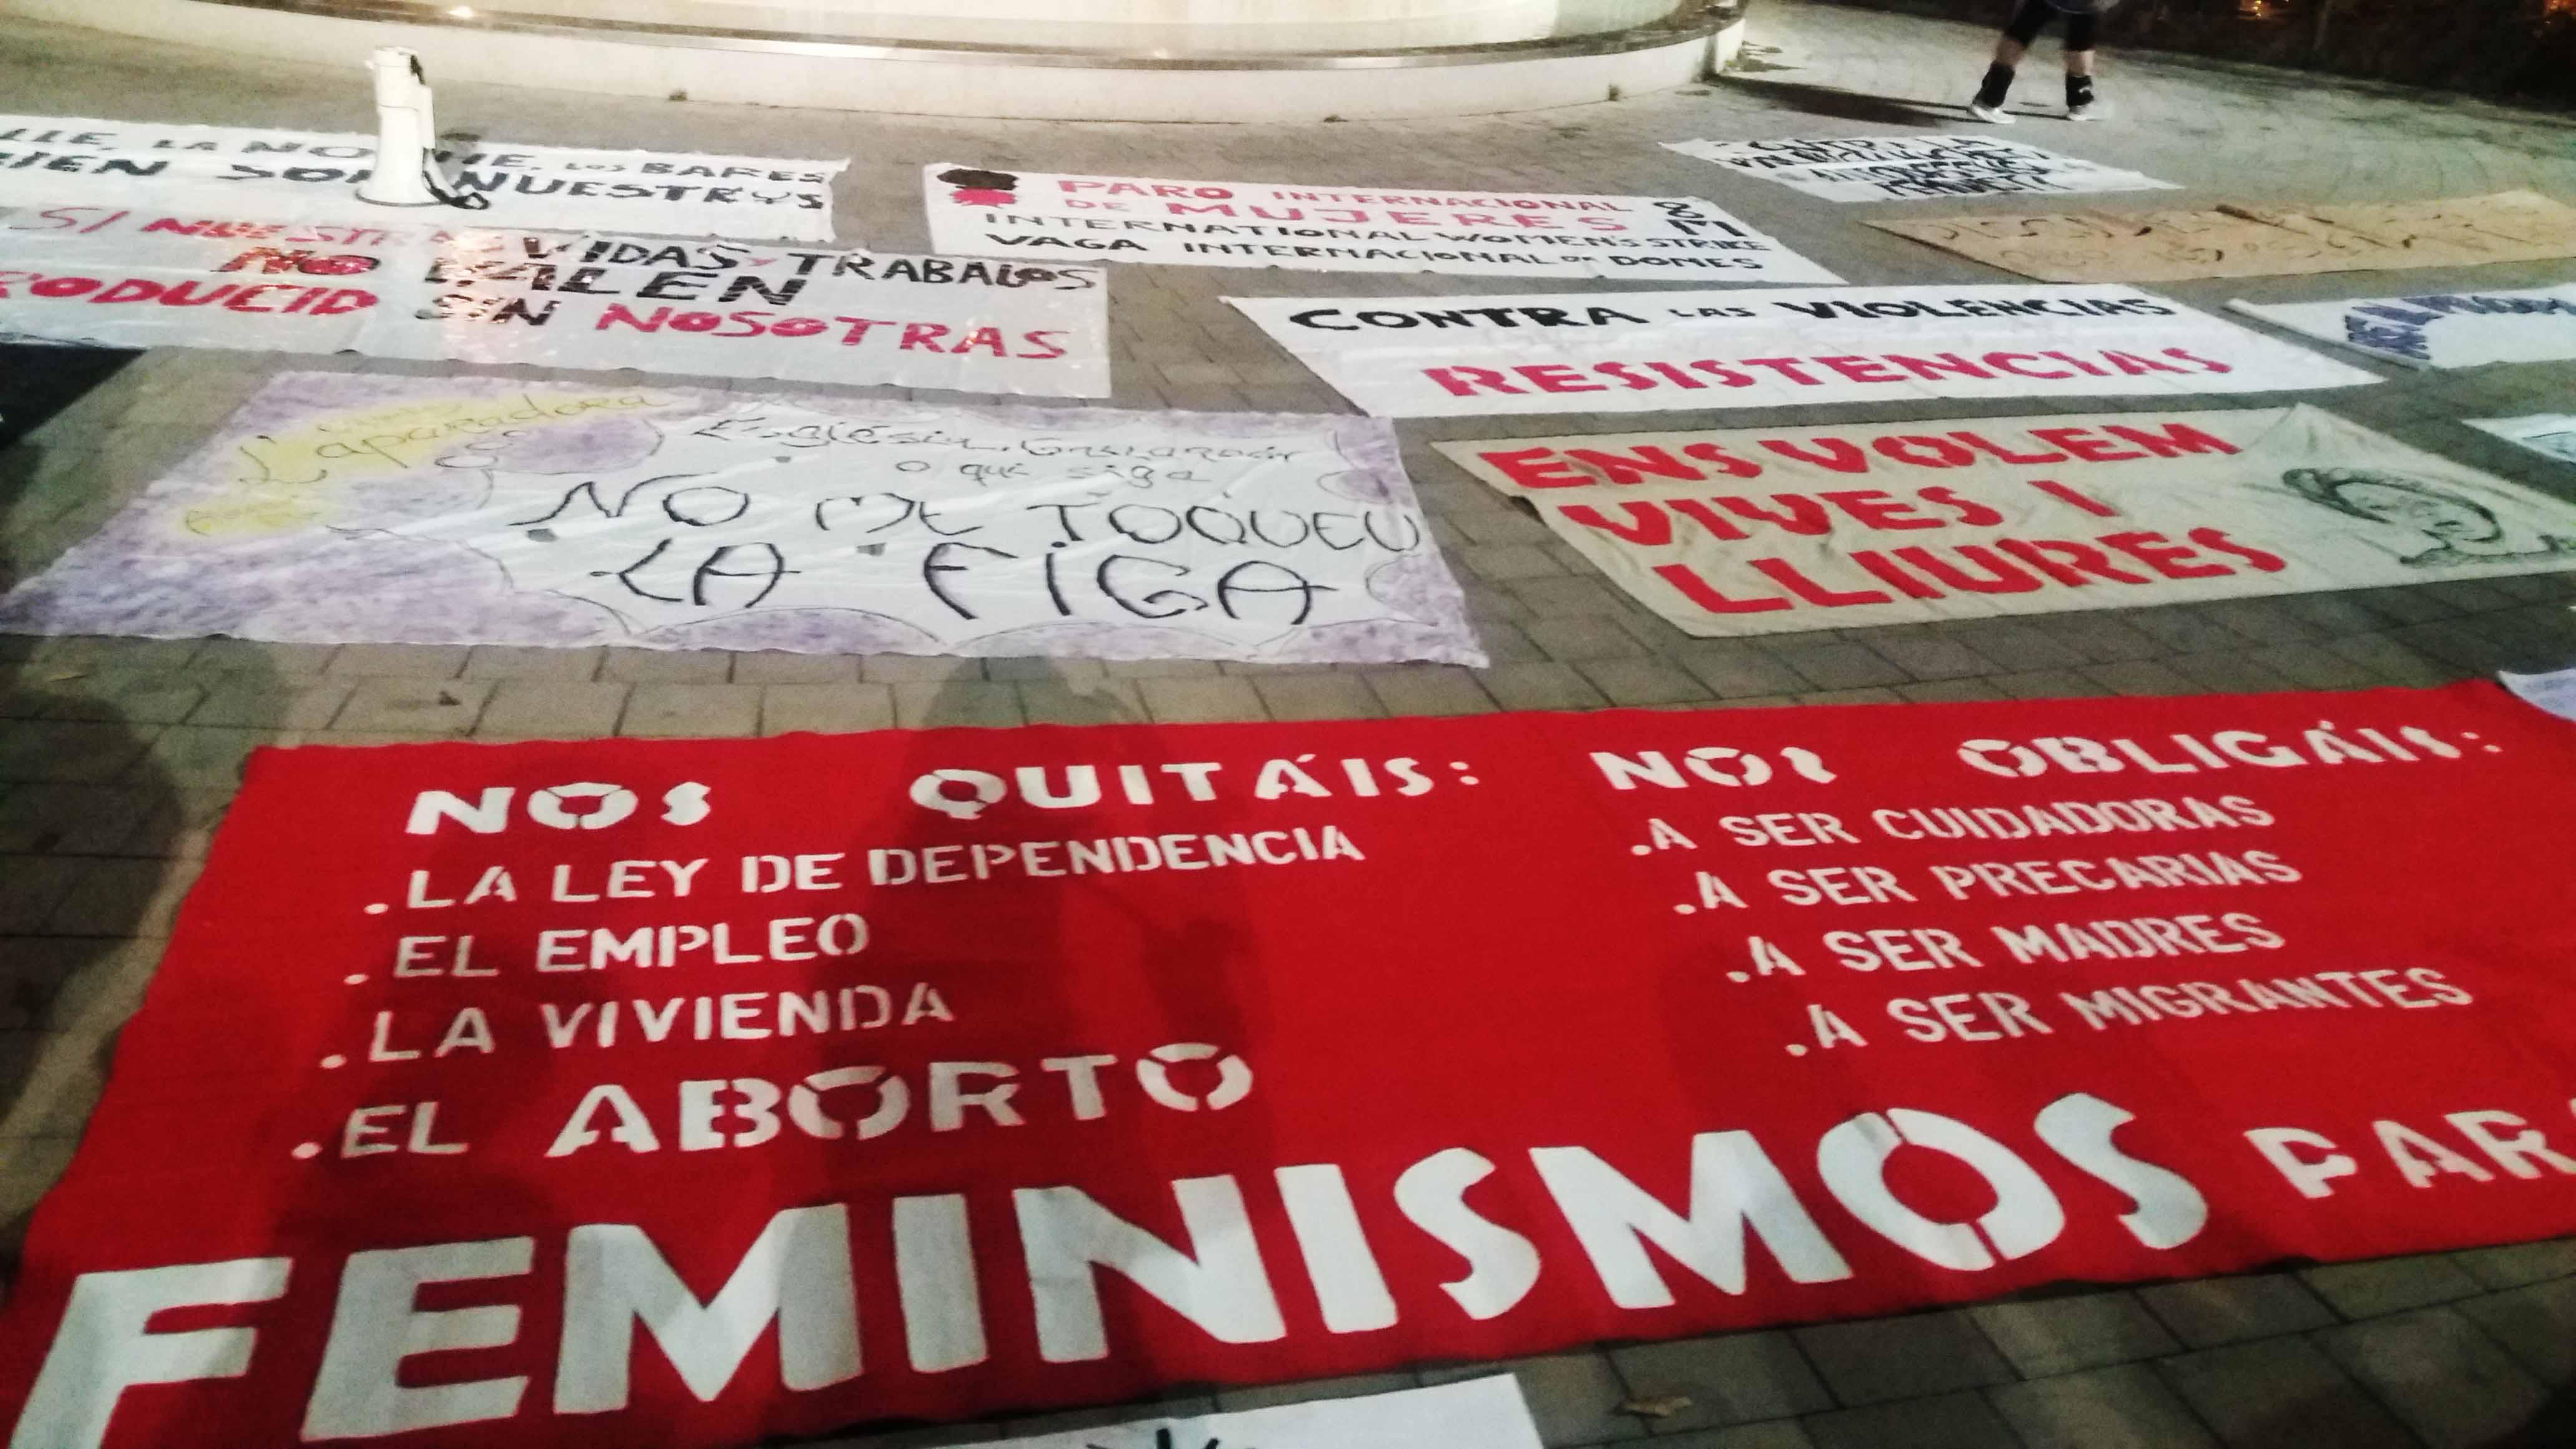 LA NOCHE, LOS BARES
SON NUESTRXS
SI NUESTRAS VIDAS Y TRABAJOS
NO VALEN
PRODUCID SIN NOSOTRAS
PARO INTERNACIONAL
DE MUJERES
INTERNATIONAL WOMEN'S STRIKE
VAGA INTERNACIONAL DE DONES
8
M
CONTRA LAS VIOLENCIAS
RESISTENCIAS
L'aparadora
o qui siga
NO ME TOQUEU
LA FIGA
ENS VOLEM
VIVES I
LLIURES
NOS QUITÁIS:
.LA LEY DE DEPENDENCIA
.EL EMPLEO
.LA VIVIENDA
.EL ABORTO
NOS OBLIGÁIS:
.A SER CUIDADORAS
.A SER PRECARIAS
.A SER MADRES
.A SER MIGRANTES
FEMINISMOS PAR